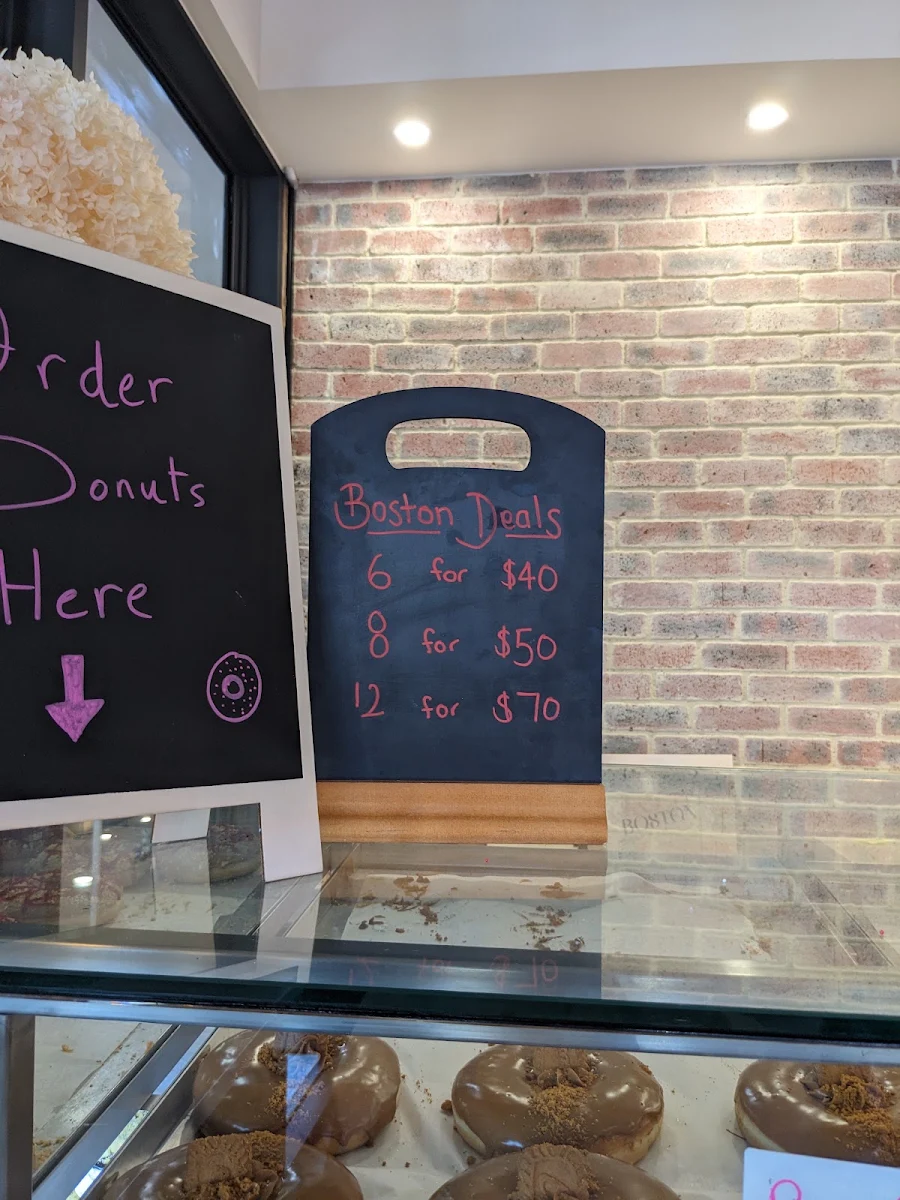 Order
Donuts
Here
Boston Deals
6 for $40
8 for $50
12 for $70
BOSTON